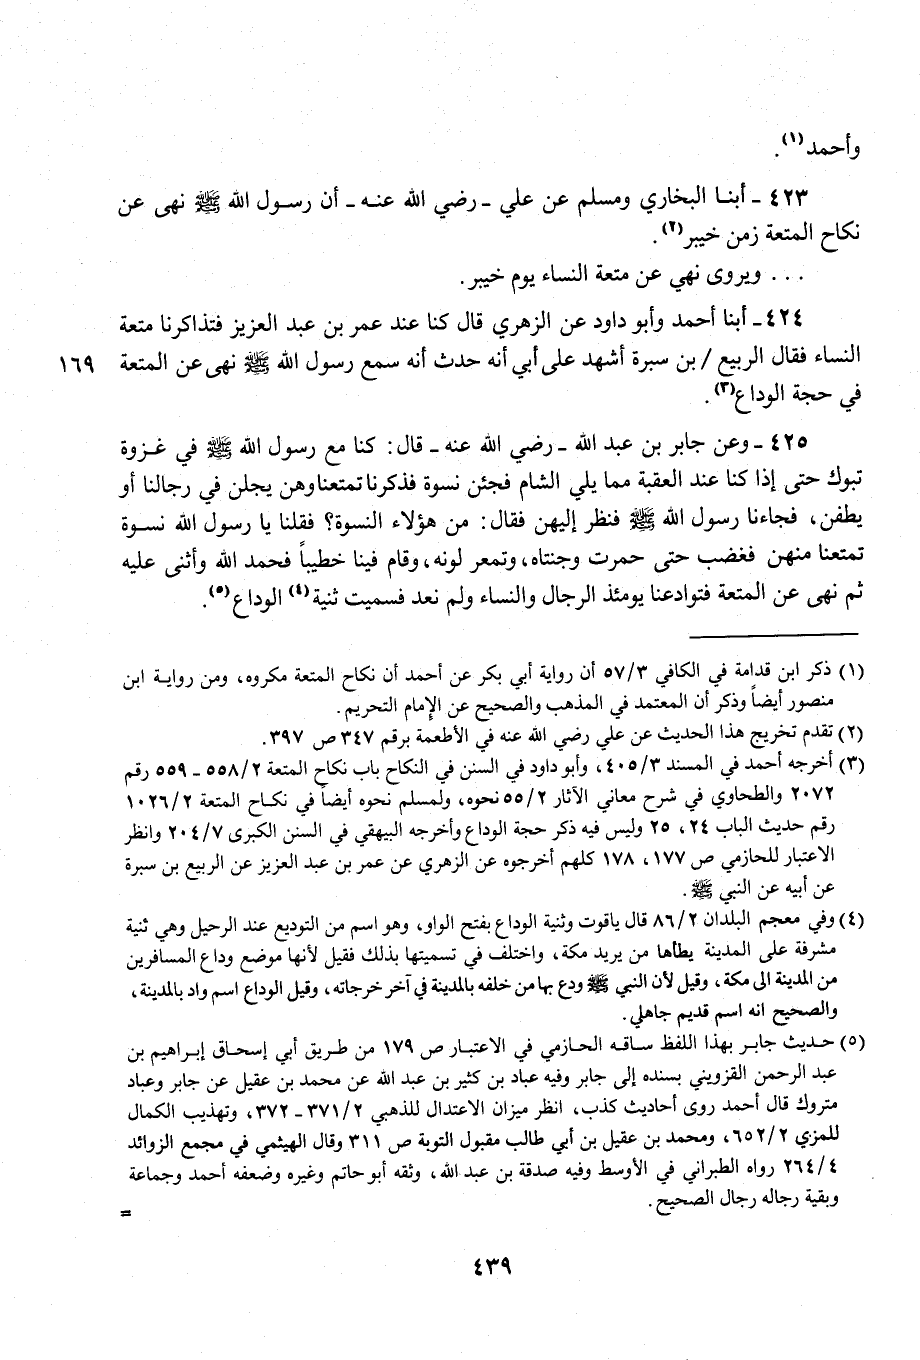 وأحمد(١).
٤٢٣ ـ أبنا البخاري ومسلم عن علي ـ رضي الله عنه ـ أن رسول الله ﷺ نهى عن
نكاح المتعة زمن خيبر(٢).
... ويروى نهي عن متعة النساء يوم خيبر.
٤٢٤ ـ أبنا أحمد وأبو داود عن الزهري قال كنا عند عمر بن عبد العزيز فتذاكرنا متعة
النساء فقال الربيع / بن سبرة أشهد على أبي أنه حدث أنه سمع رسول الله ﷺ نهى عن المتعة ١٦٩
في حجة الوداع(٣).
٤٢٥ ـ وعن جابر بن عبد الله ـ رضي الله عنه ـ قال: كنا مع رسول الله ﷺ في غزوة
تبوك حتى إذا كنا عند العقبة مما يلي الشام فجئن نسوة فذكرنا تمتعنا وهن يجلن في رجالنا أو
يطفن، فجاءنا رسول الله ﷺ فنظر إليهن فقال: من هؤلاء النسوة؟ فقلنا يا رسول الله نسوة
تمتعنا منهن فغضب حتى حمرت وجنتاه، وتمعر لونه، وقام فينا خطيباً فحمد الله وأثنى عليه
ثم نهى عن المتعة فتوادعنا يومئذ الرجال والنساء ولم نعد فسميت ثنية(٤) الوداع(٥).
(١) ذكر ابن قدامة في الكافي ٥٧/٣ أن رواية أبي بكر عن أحمد أن نكاح المتعة مكروه، ومن رواية ابن
منصور أيضاً وذكر أن المعتمد في المذهب والصحيح عن الإمام التحريم.
(٢) تقدم تخريج هذا الحديث عن علي رضي الله عنه في الأطعمة برقم ٣٤٧ ص ٣٩٧.
(٣) أخرجه أحمد في المسند ٤٠٥/٣، وأبو داود في السنن في النكاح باب نكاح المتعة ٥٥٨/٢ ـ ٥٥٩ رقم
٢٠٧٢ والطحاوي في شرح معاني الآثار ٥٥/٢ نحوه، ولمسلم نحوه أيضاً في نكاح المتعة ١٠٢٦/٢
رقم حديث الباب ٢٤، ٢٥ وليس فيه ذكر حجة الوداع وأخرجه البيهقي في السنن الكبرى ٢٠٤/٧ وانظر
الاعتبار للحازمي ص ١٧٧، ١٧٨ كلهم أخرجوه عن الزهري عن عمر بن عبد العزيز عن الربيع بن سبرة
عن أبيه عن النبي ﷺ.
(٤) وفي معجم البلدان ٨٦/٢ قال ياقوت وثنية الوداع بفتح الواو، وهو اسم من التوديع عند الرحيل وهي ثنية
مشرفة على المدينة يطاها من يريد مكة، واختلف في تسميتها بذلك فقيل لأنها موضع وداع المسافرين
من المدينة الى مكة، وقيل لأن النبي ﷺ ودع بها من خلفه بالمدينة في آخر خرجاته، وقيل الوداع اسم واد بالمدينة،
والصحيح انه اسم قديم جاهلي.
(٥) حديث جابر بهذا اللفظ ساقه الحازمي في الاعتبار ص ١٧٩ من طريق أبي إسحاق إبراهيم بن
عبد الرحمن القزويني بسنده إلى جابر وفيه عباد بن كثير بن عبد الله عن محمد بن عقيل عن جابر وعباد
متروك قال أحمد روى أحاديث كذب، انظر ميزان الاعتدال للذهبي ٣٧١/٢ ـ ٣٧٢، وتهذيب الكمال
للمزي ٦٥٢/٢، ومحمد بن عقيل بن أبي طالب مقبول التوبة ص ٣١١ وقال الهيثمي في مجمع الزوائد
٢٦٤/٤ رواه الطبراني في الأوسط وفيه صدقة بن عبد الله، وثقه أبو حاتم وغيره وضعفه أحمد وجماعة
وبقية رجاله رجال الصحيح.
=
٤٣٩